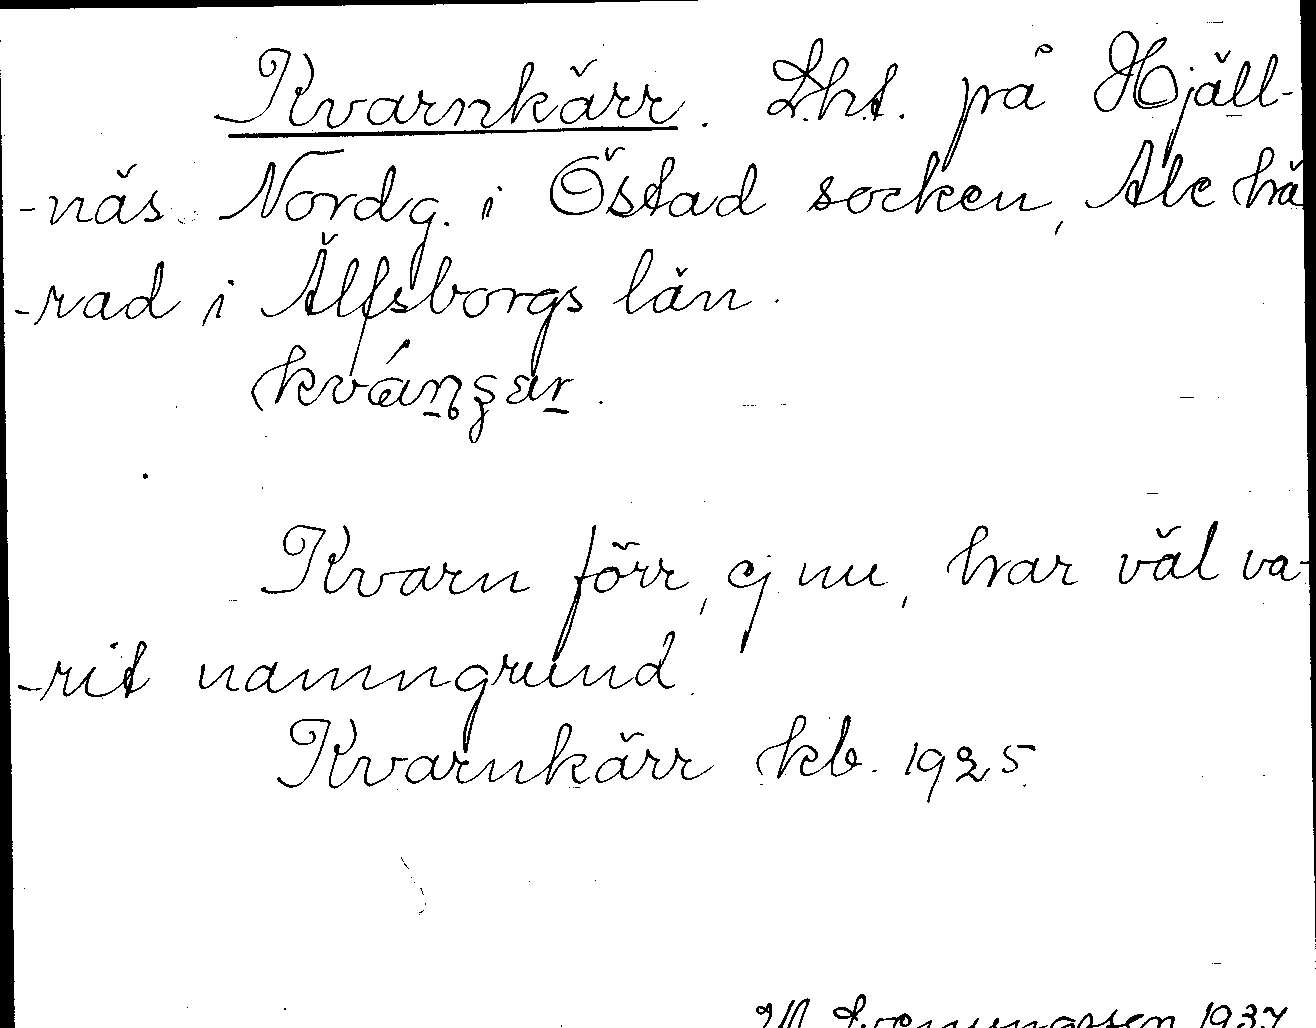 Kvarnkärr. Lht. på Hjäll-
-näs Nordg. i Östad socken, Ale hä
-rad i Älfsborgs län.
Kvarn förr, ej nu, har väl va-
-rit namngrund.
Kvarnkärr kb. 1925.
1937